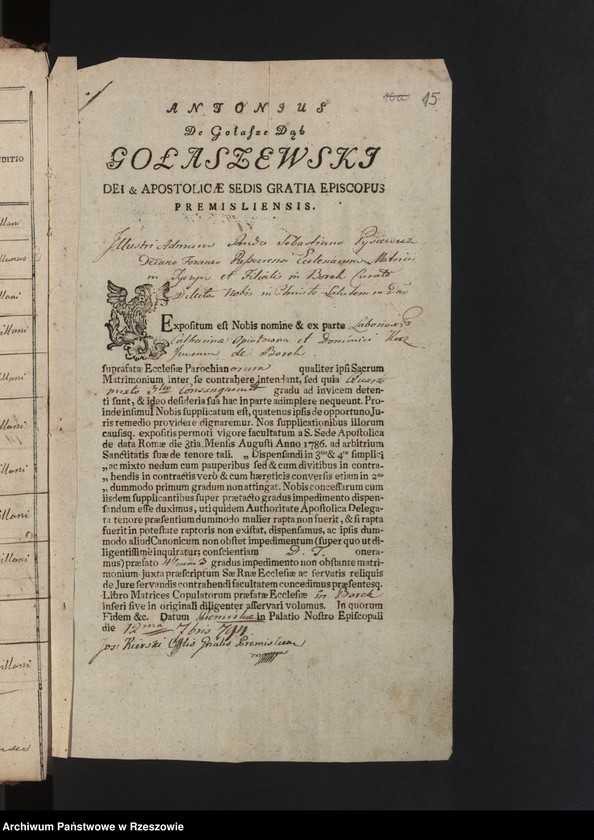 DITIO
10a 15
ANTONIUS
De Gołasze Dąb
GOŁASZEWSKI
DEI & APOSTOLICÆ SEDIS GRATIA EPISCOPUS
PREMISLIENSIS.
Illustri Admum Rndo Sebastiano
Decano Foraneo Ecclesiarum Matricis
in et Filialis in Borek Curato
Dilecto Nobis in Christo Salutem in Dno
Expositum est Nobis nomine & ex parte Laboriosor
Catharina et Dominici
de Borek
supræfatæ Ecclesiæ Parochianorum qualiter ipsi Sacrum
Matrimonium inter se contrahere intendant, sed quia Quarto
mixto 3tio Consanguinit gradu ad invicem deten-
ti sunt, & ideo desideria sua hac in parte adimplere nequeunt. Pro-
inde insimul Nobis supplicatum est, quatenus ipsis de opportuno Ju-
ris remedio providere dignaremur. Nos supplicationibus illorum
causisq. expositis permoti vigore facultatum a S. Sede Apostolica
de data Romæ die 3tia Mensis Augusti Anno 1786. ad arbitrium
Sanctitatis suæ de tenore tali. „ Dispensandi in 3tio & 4to simplici
„ ac mixto nedum cum pauperibus sed & cum divitibus in contra-
„ hendis in contractis verò & cum hæreticis conversis etiam in 2do
„ dummodo primum gradum non attingat. Nobis concessarum cum
iisdem supplicantibus super prætacto gradus impedimento dispen-
sandum esse duximus, uti quidem Authoritate Apostolica Delega-
ta tenore præsentium dummodo mulier rapta non fuerit, & si rapta
fuerit in potestate raptoris non existat, dispensamus, ac ipsis dum-
modo aliud Canonicum non obstet impedimentum (super quo ut di-
ligentissimè inquiratur, conscientiam D. T. onera-
mus) præfato 4to cum 3 gradus impedimento non obstante matri-
monium juxta præscriptum Sæ Rnæ Ecclesiæ ac servatis reliquis
de Jure servandis contrahendi facultatem concedimus præsentesq.
Libro Matrices Copulatorum præfatæ Ecclesiæ in Borek
inseri sive in originali diligenter asservari volumus. In quorum
Fidem &c. Datum Premisliæ in Palatio Nostro Episcopali
die 12ma 7bris 794
Jos: Kierski Offlis Gnalis Premislien
mpp
Archiwum Państwowe w Rzeszowie www.szukajwarchiwach.gov.pl